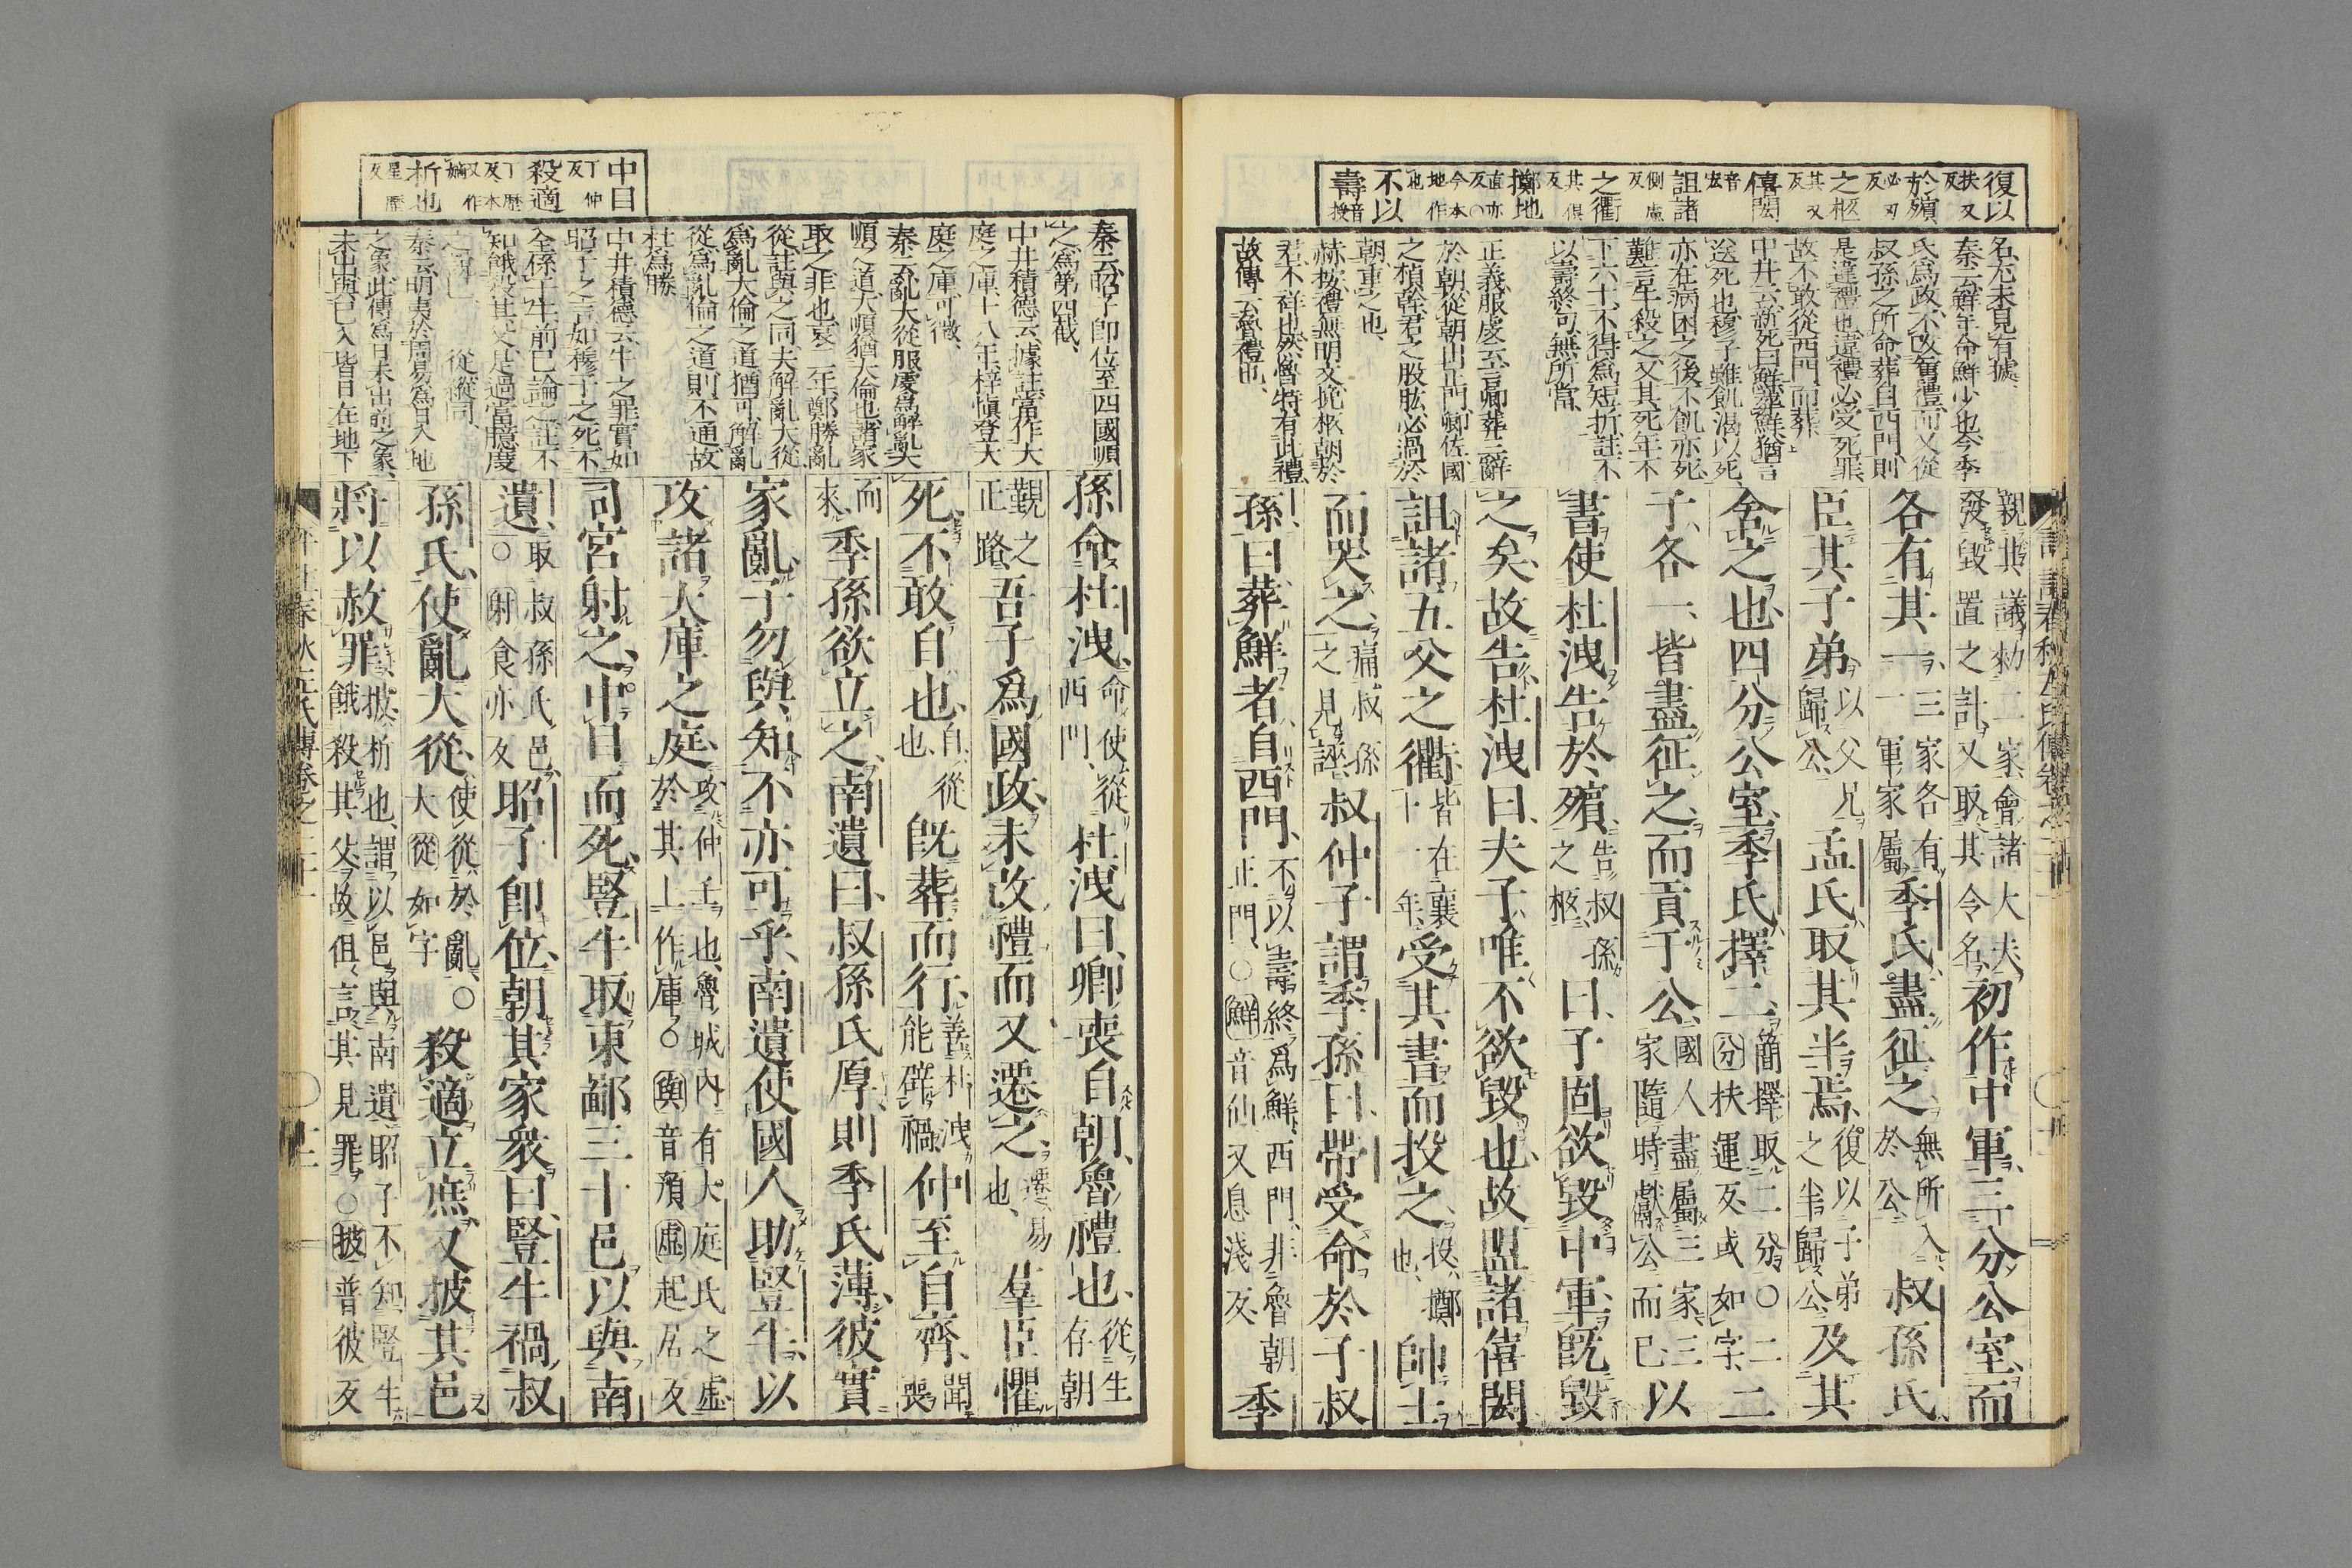 復以
扶又
反
於殯
必刃
反
之柩
其又
反
僖閎
音
宏
詛諸
側慮
反
之衢
其俱
反
擲地
直亦
反○
今本
地作
也
不以
壽
音
授
名尤未見有據、
秦云鮮年命鮮少也今季
氏爲政不改舊禮而又從
叔孫之所命葬自西門則
是違禮也違禮必受死罪
故不敢從西門而葬
中井云新死曰鮮葬鮮猶言
送死也穆子雖飢渴以死
亦在病困之後不飢亦死
難言牛殺之又其死年不
下六十不得爲短折註不
以壽終句無所當、
正義服虔云言卿葬三辭
於朝從朝出正門卿佐國
之楨幹君之股肱必過於
朝重之也
赫按禮無明文柩朝於
君不祥也然魯特有此禮
故傳云魯禮也、
親其議勑二家會諸大夫
發毀置之計又取其令名
初作中軍三分公室而
各有其一
三家各有
一軍家屬
季氏盡征之
無所入
於公
叔孫氏
臣其子弟
以父兄
歸公
孟氏取其半焉
復以子弟
之半歸公
及其
舍之也四分公室季氏擇二
簡擇取二分○
分扶運反或如字
二
子各一皆盡征之而貢于公
國人盡屬三家三
家隨時獻公而已
以
書使杜洩告於殯
告叔孫
之柩
曰子固欲毀中軍既毀
之矣故告杜洩曰夫子唯不欲毀也故盟諸僖閎
詛諸五父之衢
皆在襄
十一年
受其書而投之
投擲
也
帥士
而哭之
痛叔孫
之見誣
叔仲子謂季孫曰帶受命於子叔
孫曰葬鮮者自西門
不以壽終爲鮮西門非魯朝
正門○鮮音仙又息淺反
季
中目
丁仲
反
殺適
丁歷
反本
又作
嫡
析也
星歷
反
秦云昭子卽位至四國順
之爲第四截、
中井積德云據註當作大
庭之庫十八年梓愼登大
庭之庫可徵、
秦云亂大從服虔爲解亂大
順之道大順猶大倫也諸家
取之非也哀二年鄭勝亂
從註與之同夫解亂大從
爲亂大倫之道猶可解亂
從爲亂倫之道則不通故
杜爲勝
中井積德云牛之罪實如
昭子之言如穆子之死不
全係于牛前已論之註不
知餓殺其父是過當臆度
從縱同、
秦云明夷於周易爲日入地
之象此傳爲日未出前之象
未出與已入皆日在地下
孫命杜洩
命使從
西門
杜洩曰卿喪自朝魯禮也
從生
存朝
覲之
正路
吾子爲國政未改禮而又遷之
遷易
也
羣臣懼
死不敢自也
自從
也
既葬而行
善杜洩
能辟禍
仲至自齊
聞
喪
而
來
季孫欲立之南遺曰叔孫氏厚則季氏薄彼實
家亂子勿與知不亦可乎南遺使國人助豎牛以
攻諸大庫之庭
攻仲壬也魯城內有大庭氏之虛
於其上作庫○與音預虛起居反
司宮射之中目而死豎牛取東鄙三十邑以與南
遺
取叔孫氏邑
○射食亦反
昭子卽位朝其家衆曰豎牛禍叔
孫氏使亂大從
使從於亂○
大從如字
殺適立庶又披其邑
將以赦罪
披析也謂以邑與南遺昭子不知豎牛
餓殺其父故但言其見罪○披普彼反